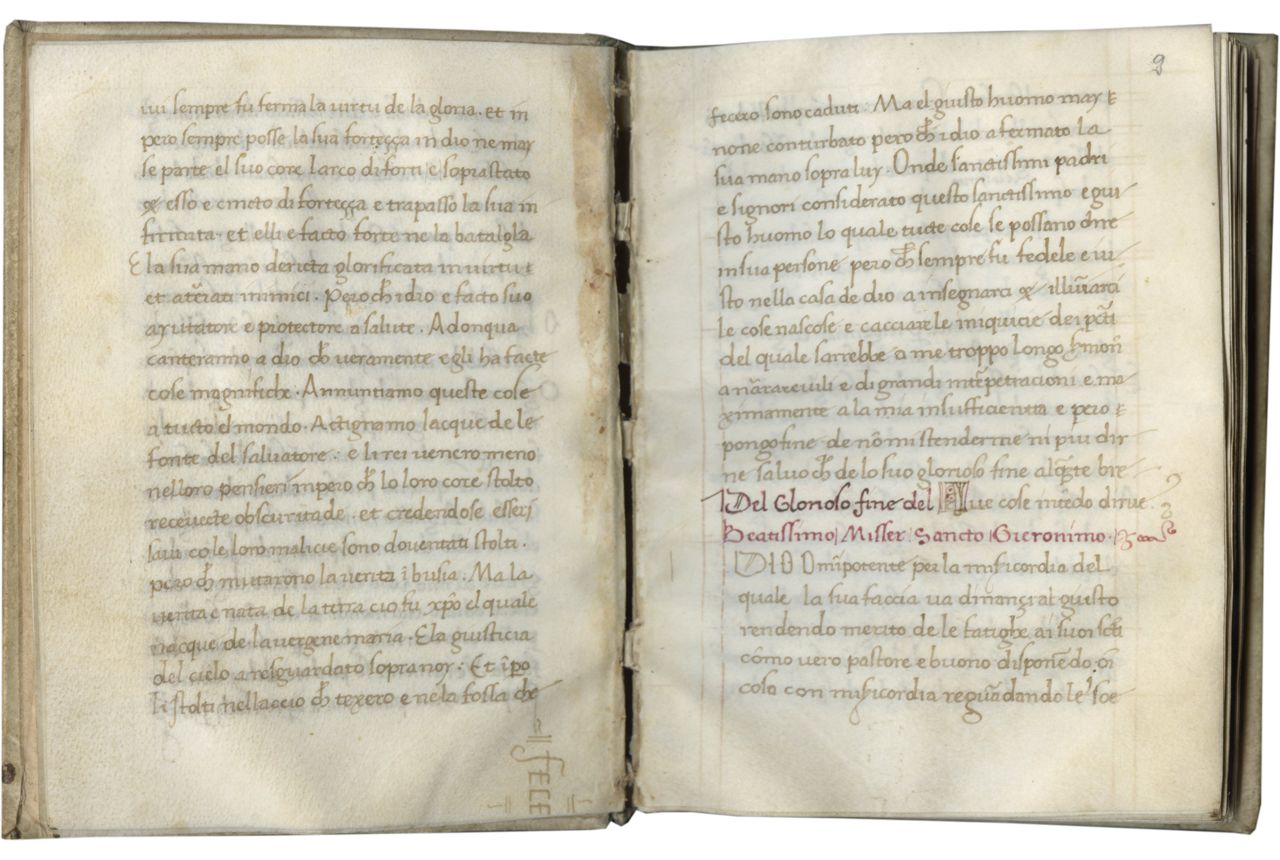 lui sempre fu ferma la virtu de la gloria. et in
pero sempre posse la sua forteçça in dio ne may
se parte el suo core larco di forti e soprastato
esso e cincto di forteçça e trapasso la sua in
firmitata. et elli e facto forte ne la batalgla
E la sua mano dericta glorificata in virtu
et at̃rati inimici. Pero ch̃ idio e facto suo
ayutatore e protectore a salute. Adonqua
canteranno a dio ch̃ veramente egli ha facte
cose magnifich̃e. Annuntiamo queste cose
a tucto el mondo. Actignamo lacque de le
fonte del salvatore. e li rei venero meno
nelloro pensieri inpero ch̃ lo loro core stolto
recevecte obscuritade. et credendose esseri
savi co le loro malicie sono doventati stolti.
pero ch̃ mutarono la verita ĩ busia. Ma la
verita e nata de la terra cio fu xp̃o el quale
nacque de la vergene maria. E la giusticia
del cielo a resguardato sopra noy. Et ĩp̃o
li stolti nellaccio ch̃ texero e ne la fossa ch̃e
FECE
9
fecero sono caduti. Ma el giusto huomo may
none conturbato pero ch̃ idio a fermato la
sua mano sopra luy. Onde sanctissimi padri
e signori considerato questo sanctissimo e giu
sto huomo lo quale tucte cose se possano dire
in sua persone pero ch̃ sempre fu fedele e iu
sto nella casa de dio a insegnarci illum̃arci
le cose nascose e cacciare le iniquicie dei pc̃ti
del quale sarrebbe a me troppo longo sermon̄
a nar̃are vili e di grandi int̃petracioni e ma
ximamente a la mia insufficientia e pero
pongo fine de nõ mi stenderme ni piu dir
ne salvo ch̃ de lo suo glorioso fine alq̃te bre
Del Glorioso fine del ve cose intẽdo dirve.
Beatissimo Misser Sancto Gieronimo.
DIO Om̃ipotente per la misicordia del
quale la sua faccia va dinançi al giusto
rendendo merito de le fatigh̃e ai suoi sc̃ti
cõmo vero pastore e buono disponẽdo õi
cosa con misicordia reguãdando le soe